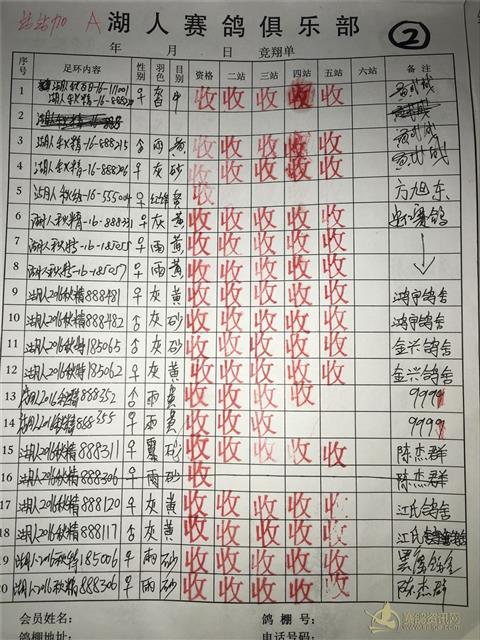 站站加 A 湖人赛鸽俱乐部 ②
年 月 日 竞翔单
序号 足环内容 性别 羽色 目别 资格 二站 三站 四站 五站 六站 备注
1 湖人秋精-16-888 ♀ 灰 收 收 收 收 收
2
3 湖人秋精-16-888215 雨 黄 收 收 收 收 收
4 湖人秋精-16-888206 ♀ 灰 砂 收 收 收 收 收
5 湖人秋 -16-555004 ♀ 收 方旭东
6 湖人秋精-16-888231 ♀ 灰 黄 收 收 收 收 收 赛鸽
7 湖人秋特-16-185055 ♀ 雨 黄 收 收 收 收 收 ↓
8 湖人秋特-16-185057 ♀ 雨 黄 收 收 收 收 收
9 湖人2016秋精888481 ♀ 灰 黄 收 收 收 收 收 鸿宇鸽舍
10 湖人2016秋精888482 灰 砂 收 收 收 收 收 鸿宇鸽舍
11 湖人2016秋特185065 灰 砂 收 收 收 收 收 金兴鸽舍
12 湖人2016秋特185062 ♀ 灰 黄 收 收 收 收 收 金兴鸽舍
13 湖人2016秋精888352 雨 黄 收 收 收 收 9999
14 湖人2016秋精888355 ♀ 雨 黄 收 收 收 9999
15 湖人2016秋精888311 ♀ 砂 收 收 收 收 收 陈杰群
16 湖人2016秋精888306 ♀ 雨 砂 收 陈杰群
17 湖人2016秋精888120 ♀ 灰 黄 收 收 收 收 收 江氏鸽舍
18 湖人2016秋精888117 灰 黄 收 收 收 收 收 江氏
19 湖人2016秋特185006 ♀ 雨 砂 收 收 收 收 收
20 湖人2016秋精888306 ♀ 雨 砂 收 收 收 收 收 陈杰群
会员姓名: 鸽棚号:
鸽棚地址: 电话号码:
赛鸽资讯网